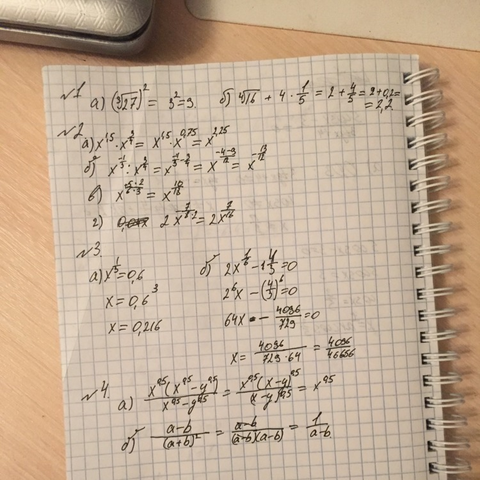 №1
а) (∛27)² = 3² = 9. б) ⁴√16 + 4 · 1/5 = 2 + 4/5 = 2 + 0,2 =
= 2,2
№2
а) x^1,5 · x^(3/4) = x^1,5 · x^0,75 = x^2,25
б) x^(-1/3) : x^(3/4) = x^(-1/3 - 3/4) = x^((-4-9)/12) = x^(-13/12)
в) = x^(10/18)
г) = 2x^(7/16)
№3.
а) x^(1/3) = 0,6 б) 2x^(1/6) - 1 4/5 = 0
x = 0,6³ 2⁶x - (4/3)⁶ = 0
x = 0,216 64x - 4096/729 = 0
x = 4096/(729·64) = 4096/46656
№4.
а) x^0,5(x^0,5 - y^0,5)/(x^0,5 - y^0,5) = x^0,5(x-y)^0,5/(x-y)^0,5 = x^0,5
б) (a-b)/(a+b)² = (a-b)/((a-b)(a-b)) = 1/(a-b)